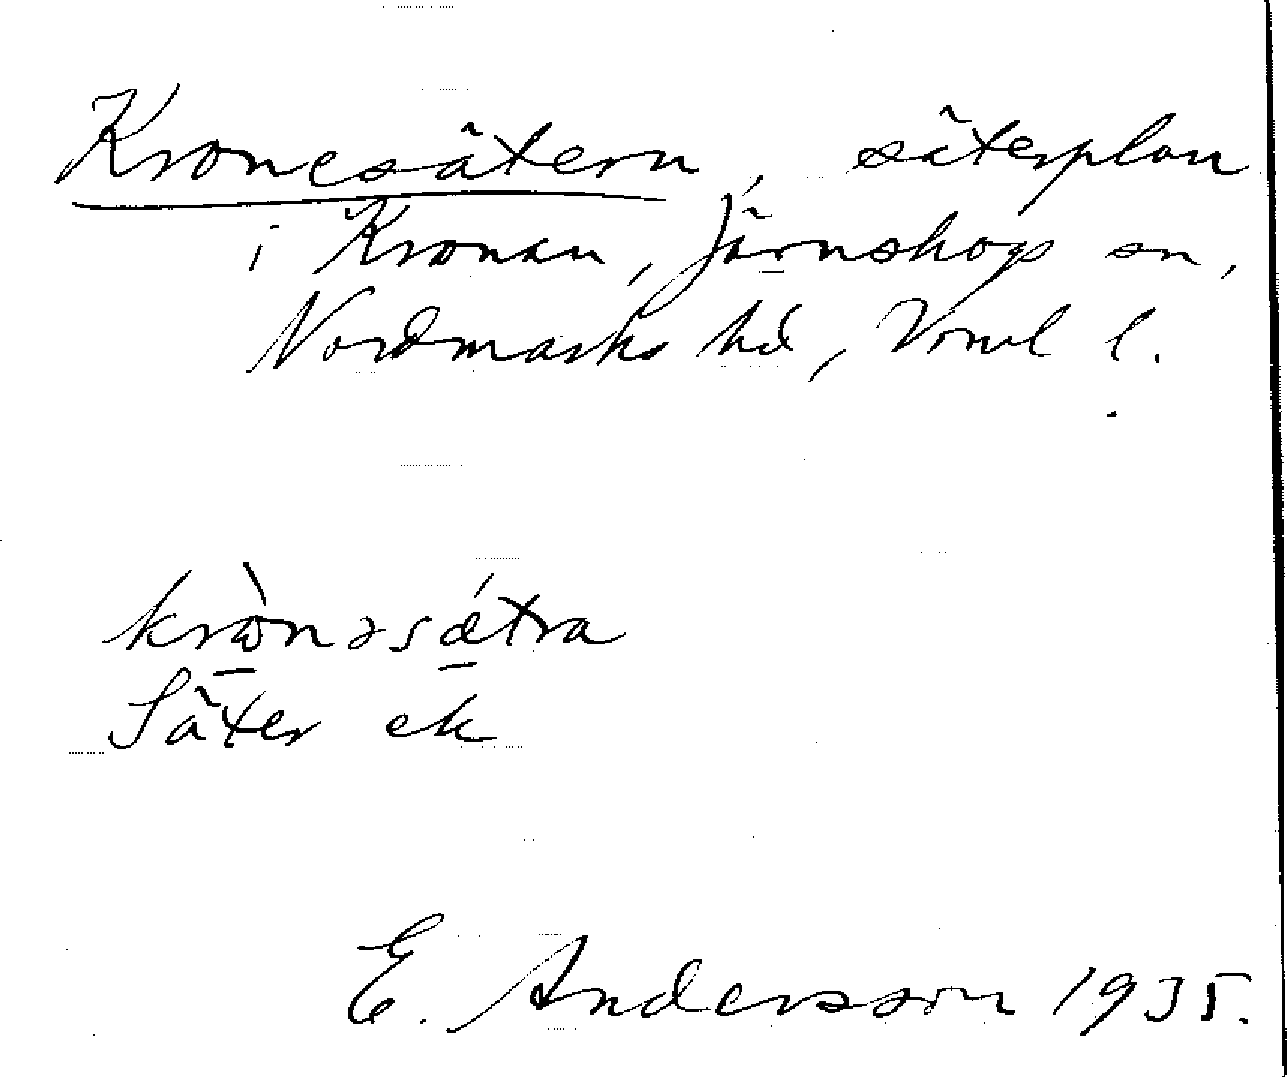 Kronesätern, säterplan
i Kronan, Järnskogs sn,
Nordmarks hd, Vrml l.
krònəsǽtra
Säter ek
E. Andersson 1935.